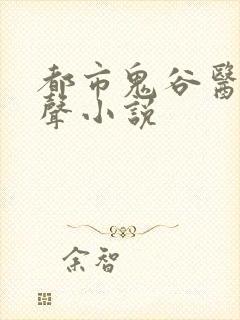 都市鬼谷醫
聲小說
余智